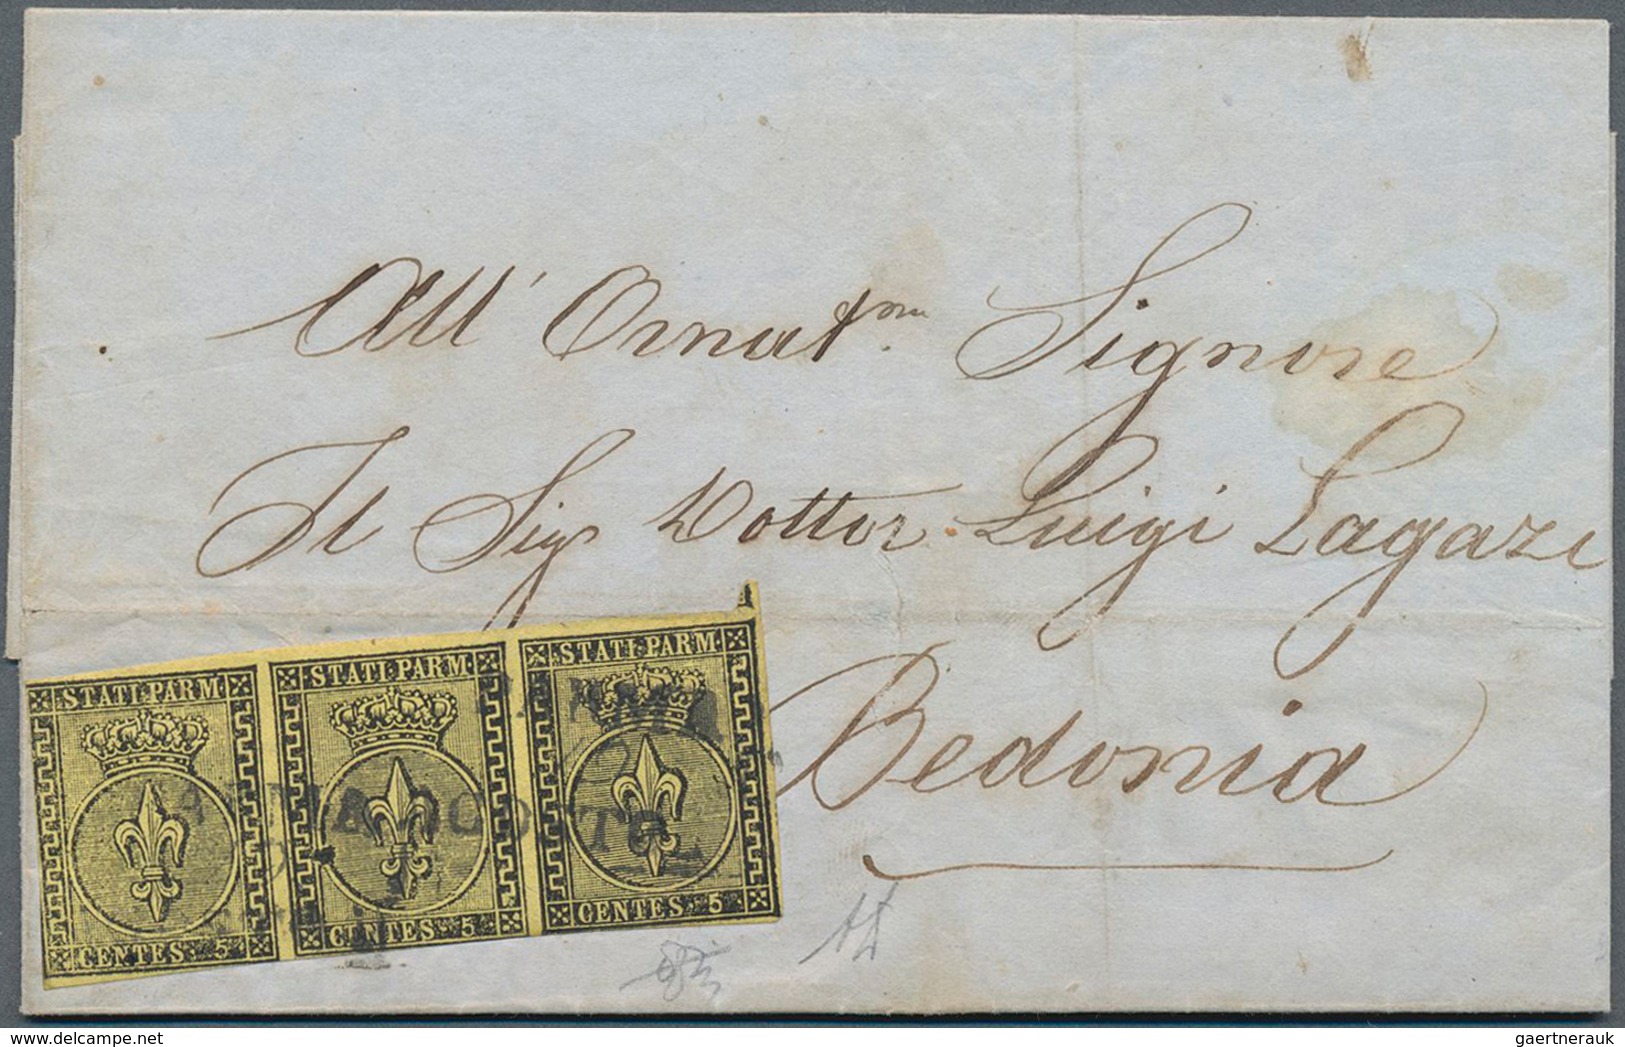 All' Ornat.mo Signore
Il Sig.r Dottor Luigi Lagazi
Bedonia
STATI PARM. STATI PARM. STATI PARM.
CENTES. 5 CENTES. 5 CENTES. 5
gaertnerauk